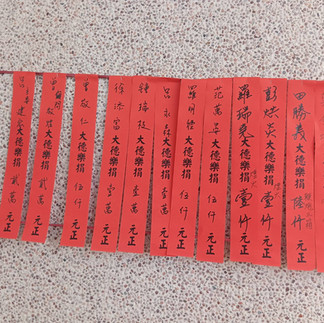 田勝義大德樂捐陸仟元正
彭烘炎大德樂捐壹仟元正
羅瑞亮大德樂捐壹仟元正
范萬安大德樂捐伍仟元正
羅明悟大德樂捐伍仟元正
大德樂捐壹萬元正
鍾瑞枝大德樂捐壹萬元正
徐添富大德樂捐壹萬元正
曾敬仁大德樂捐伍仟元正
大德樂捐貳萬元正
大德樂捐貳萬元正